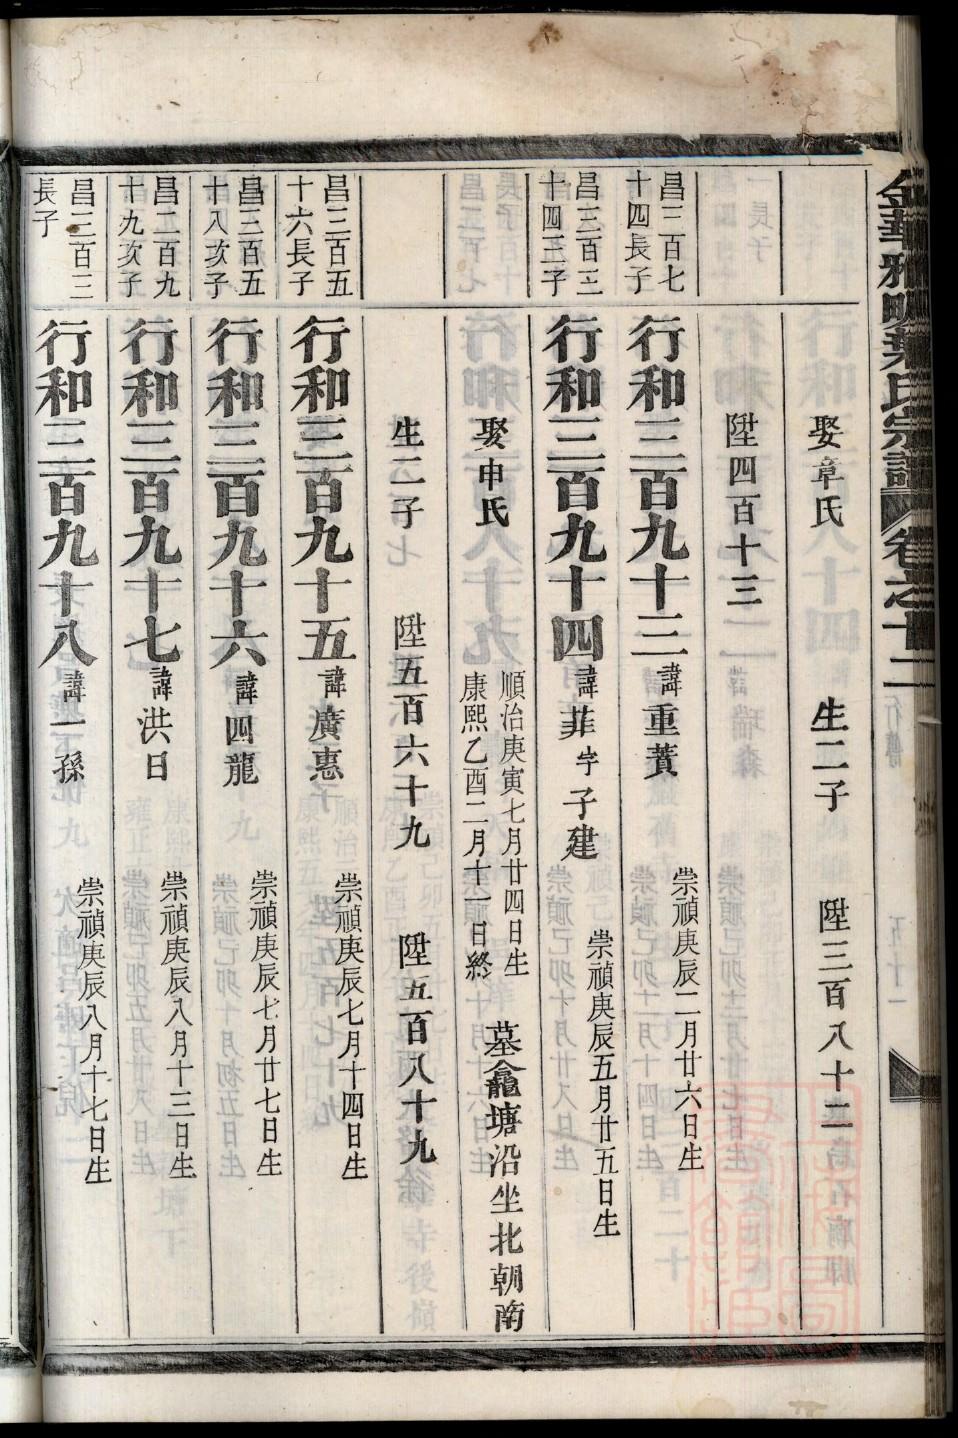 金華雅畈葉氏宗譜 卷之十二
娶章氏 生二子 陞三百八十二
陞四百十三
昌三百七十四長子
行和三百九十三 諱重蕡 崇禎庚辰二月廿六日生
昌三百三十四三子
行和三百九十四 諱菲 字子建 崇禎庚辰五月廿五日生
娶申氏 順治庚寅七月廿四日生 康熙乙酉二月十一日終 墓龕塘沿坐北朝南
生二子 陞五百六十九 陞五百八十九
昌三百五十六長子
行和三百九十五 諱廣惠 崇禎庚辰七月十四日生
昌三百五十八次子
行和三百九十六 諱四龍 崇禎庚辰七月廿七日生
昌二百九十九次子
行和三百九十七 諱洪日 崇禎庚辰八月十三日生
昌三百三長子
行和三百九十八 諱一孫 崇禎庚辰八月十七日生